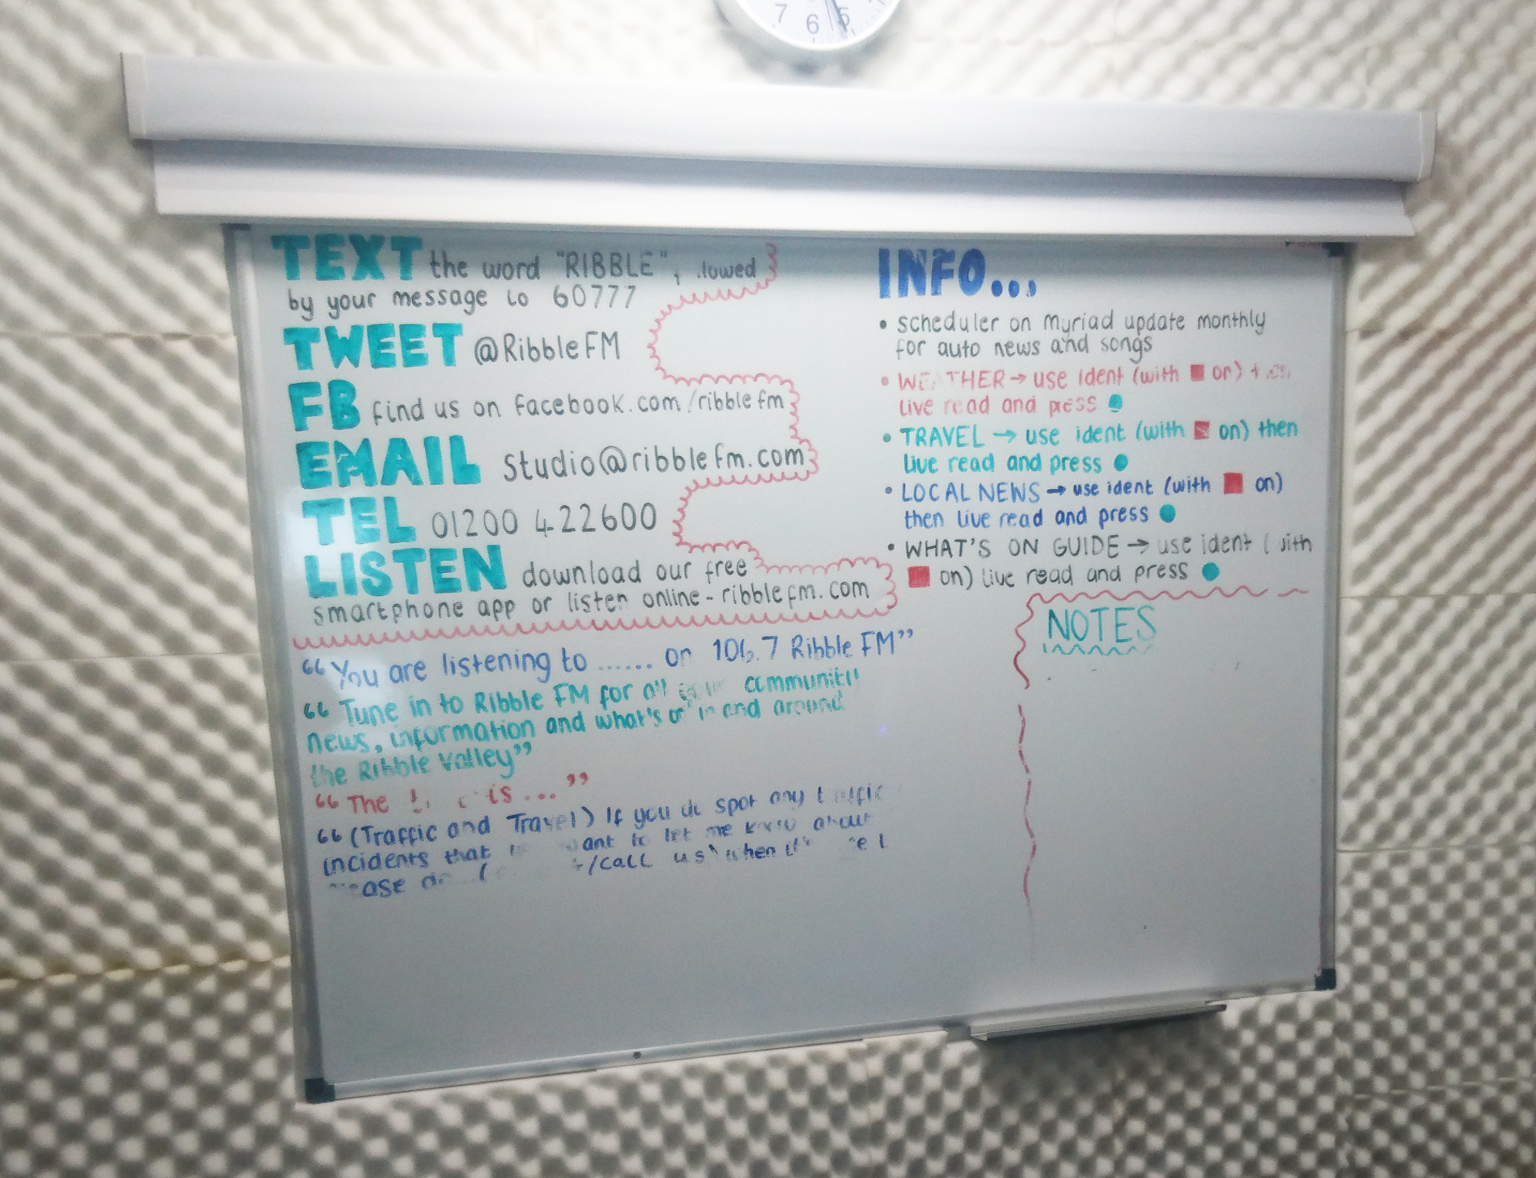 7 6 5
TEXT the word "RIBBLE",
by your message to 60777
TWEET @RibbleFM
FB find us on facebook.com/ribblefm
EMAIL studio@ribblefm.com
TEL 01200 422600
LISTEN download our free
smartphone app or listen online - ribblefm.com
"You are listening to ...... on 106.7 Ribble FM"
"Tune in to Ribble FM for all community
news, information and what's on in and around
the Ribble Valley"
"The is ... "
"(Traffic and Travel) If you do spot any traffic
incidents that want to let me know about
/call us when
INFO...
• scheduler on Myriad update monthly
for auto news and songs
• WEATHER → use ident (with on)
live read and press
• TRAVEL → use ident (with on) then
live read and press
• LOCAL NEWS → use ident (with on)
then live read and press
• WHAT'S ON GUIDE → use ident (with
on) live read and press
NOTES